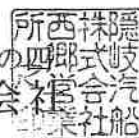 隠岐汽船
株式会社
西郷営業
所
の四
会社